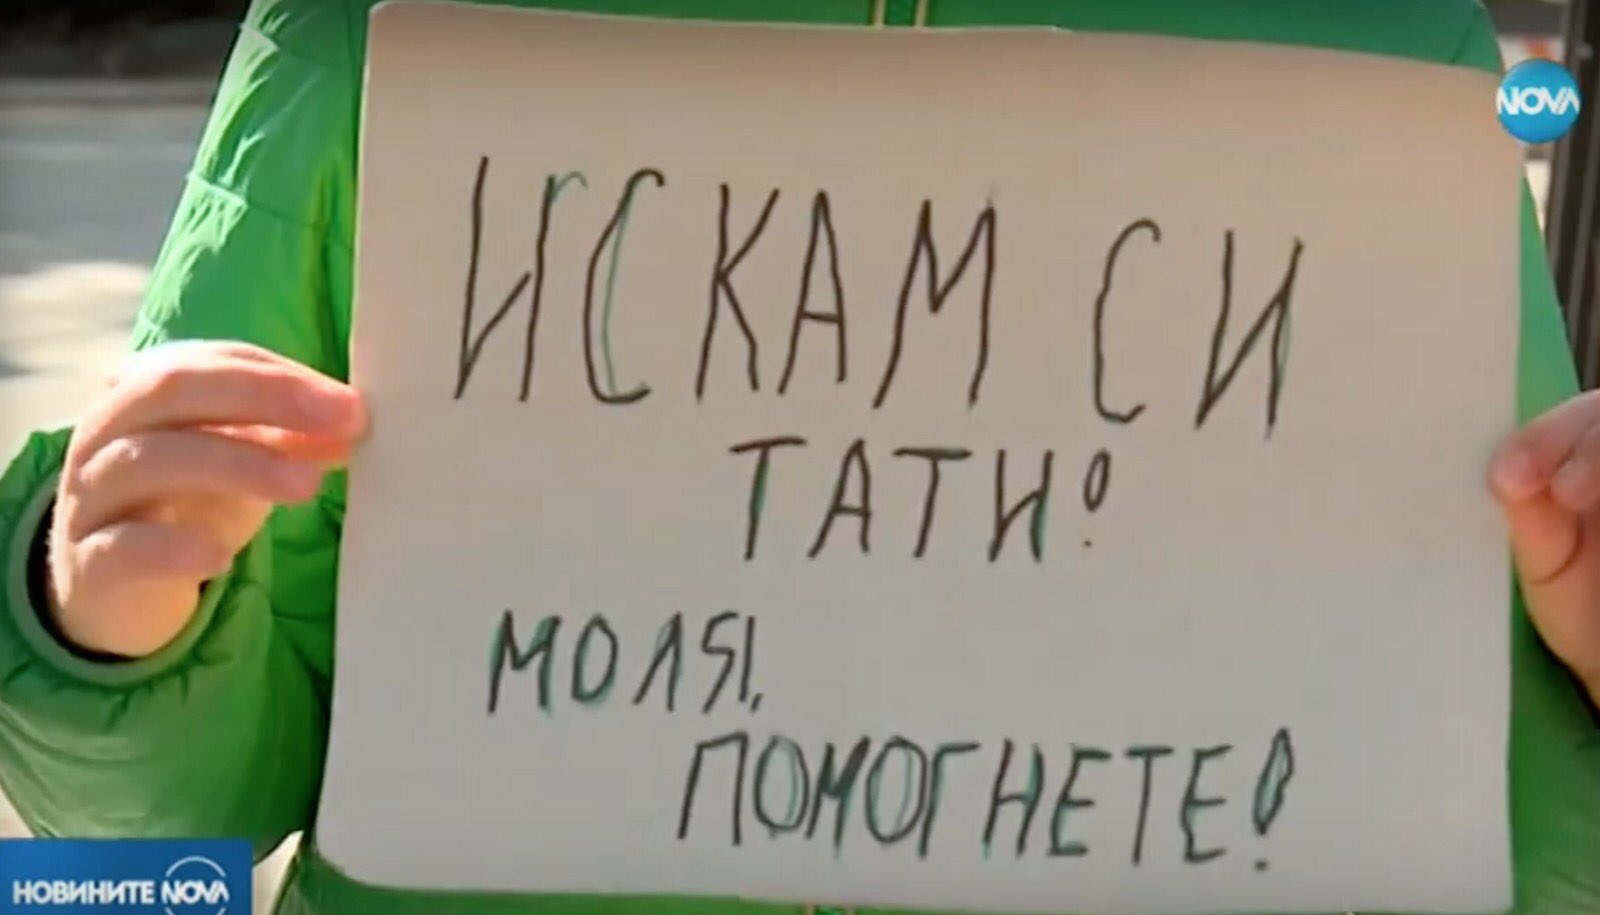 NOVA
ИСКАМ СИ
ТАТИ!
МОЛЯ,
ПОМОГНЕТЕ!
НОВИНИТЕ NOVA